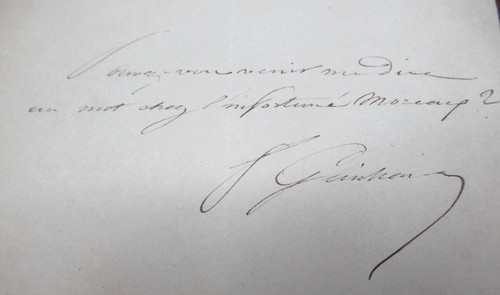 Pouvez-vous venir me dire
un mot chez l'infortuné Moreau ?